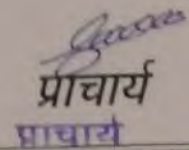 प्राचार्य
प्राचार्य